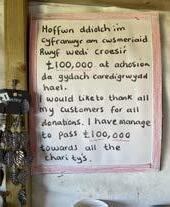 Hoffwn ddiolch i'm
Cyfranwyr am cwsmeriaid
Rwyf wedi croesir
£100,000 at achosion
da gydach caredigrwydd
hael.
I would like to thank all
my customers for all
donations. I have manage
to pass £100,000
towards all the
charity's.